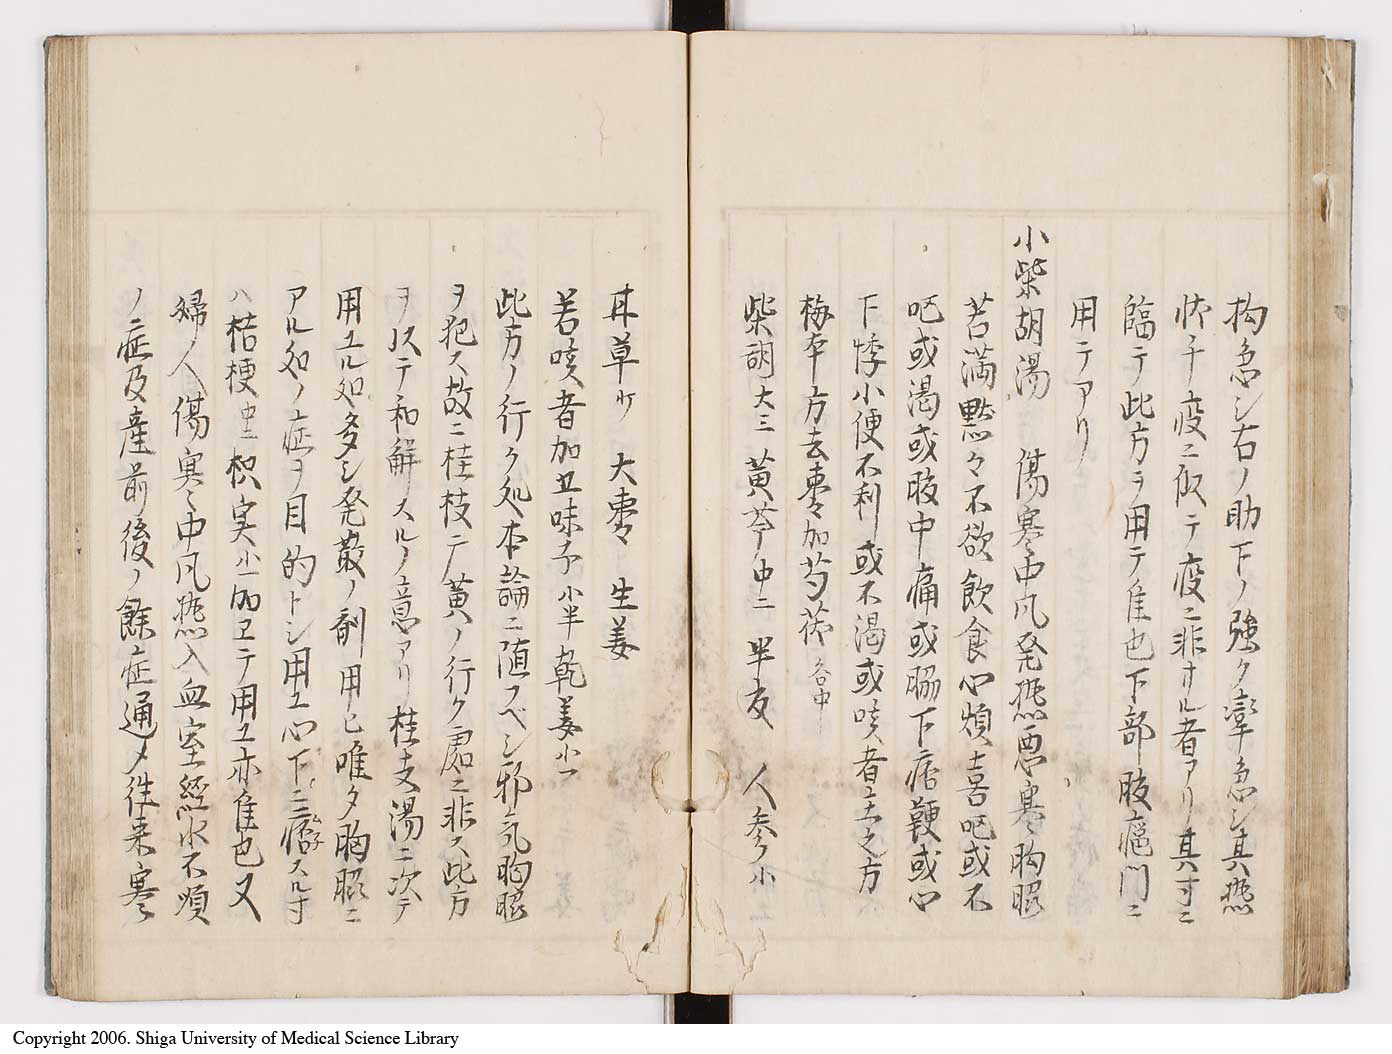 拘急シ右ノ助下ノ強ク攣急シ其熱
状チ疫ニ似テ疫ニ非サル者アリ其寸ニ
臨テ此方ヲ用テ隹也下部腹痛門ニ
用テアリ
小柴胡湯 傷寒中风発熱悪寒胸脇
苦満黙々不欲飲食心煩喜呕或不
呕或渇或腹中痛或脇下痞鞕或心
下悸小便不利或不渇或咳者主之方
梅本方去棗加芍茯各中
柴胡大三 黄芩中二 半夏 人参小
甘草小 大棗 生姜
若咳者加五味子小半乾姜小一
此方ノ行ク処本論ニ随フベシ邪氣胸脇
ヲ犯ス故ニ桂枝ニ广黄ノ行ク處ニ非ス此方
ヲ以テ和解スルノ意アリ桂支湯ニ次テ
用ユル処多シ発散ノ剤用ヒ唯タ胸脇ニ
アル処ノ症ヲ目的トシ用ユ心下ニ痞スル寸
ハ桔梗中二枳実小一加ヱテ用ユ亦隹也又
婦人傷寒中风熱入血室經水不順
ノ症及産前後ノ餘症通メ往来寒
Copyright 2006. Shiga University of Medical Science Library